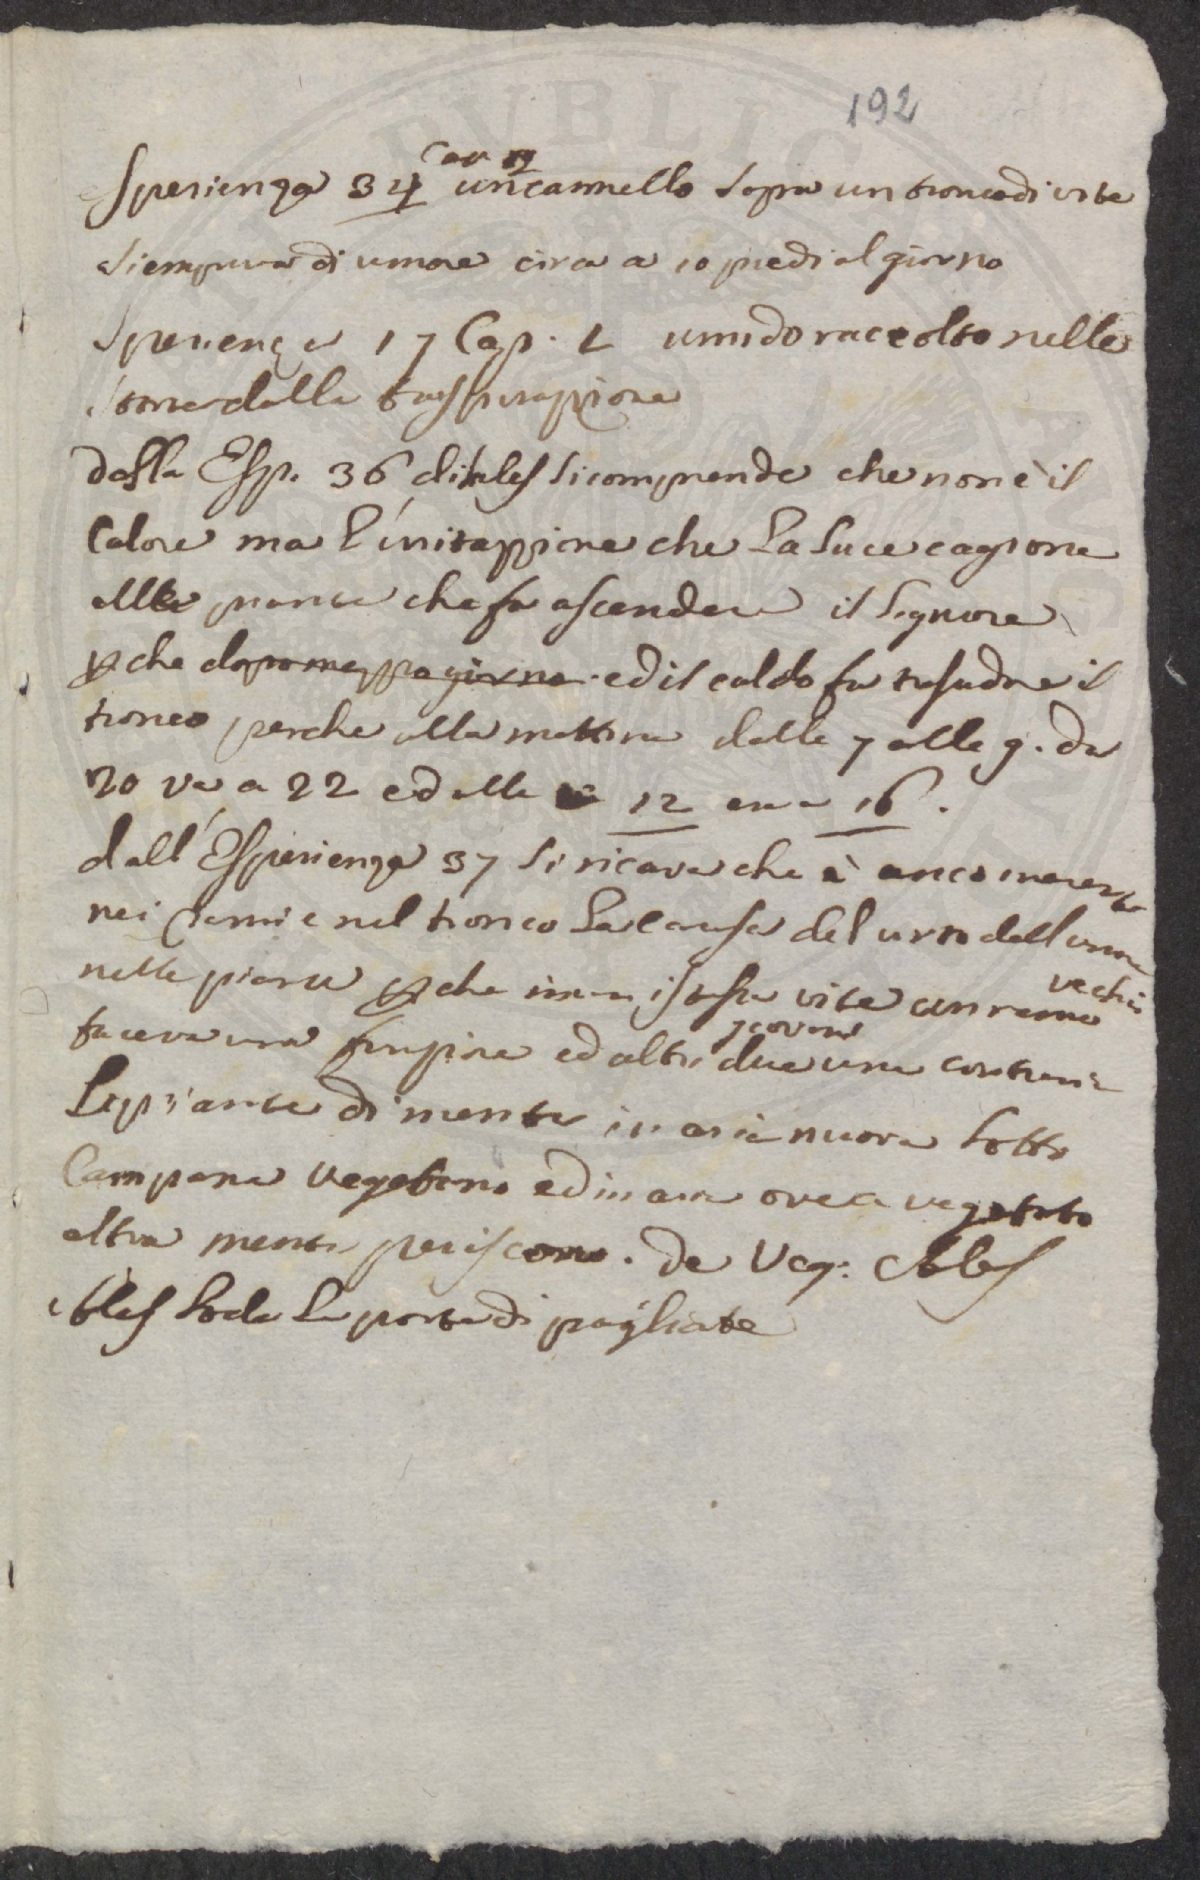 192
Sperienza 34 Cap un cannello sopra un tronco di vite
si empiva di umore circa a 10 piedi al giorno
Sperienza 17 Cap. 1 umido raccolto nelle
dalla traspirazione
dalla Esp. 36 di hales si comprende che non è il
Calore ma l'irritazzione che La Luce cagiona
alle piante che fa ascendere il
che dopo mezzo giorno ed il caldo fa il
tronco perche alla mattina dalle 7 alle 9. da
20 va a 22 ed alle 12 era a 16.
dall'Esperienza 37 si ricava che è anco
nei rami e nel tronco La Causa del urto dell umore
nelle piante che in una istessa vite un ramo vechio
faceva una funzione ed altri due giovani una contraria
Le piante di menta in aria nuova sotto
Campana vegetano ed in aria ove a vegetato
altra menta periscono. de Veg: Ales
Ales Loda La porta di pagliate